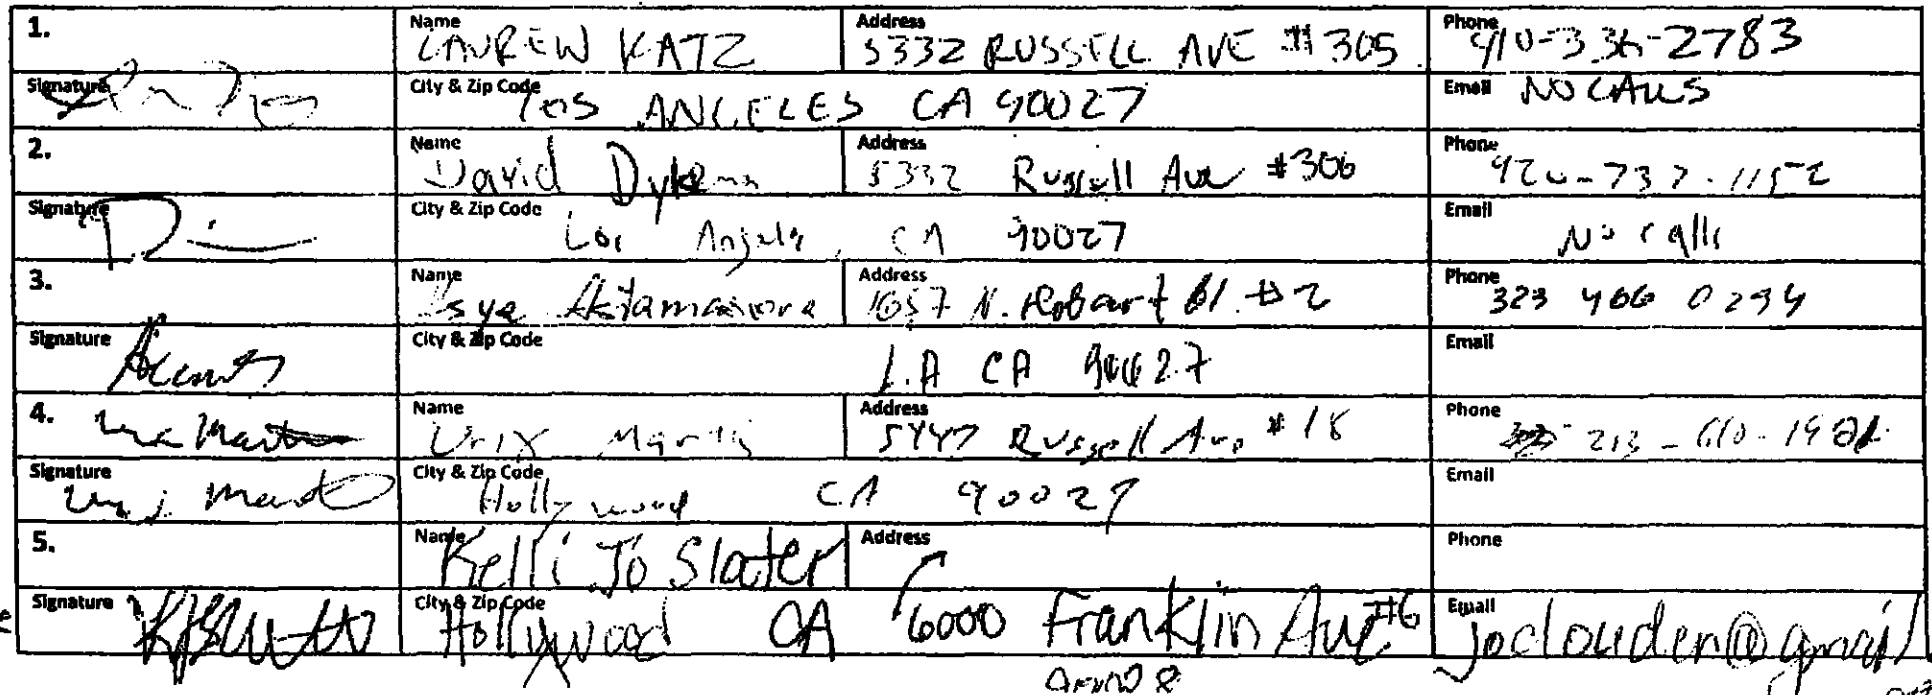 1. Name LAUREN KATZ Address 5332 RUSSELL AVE #305 Phone 410-336-2783
Signature City & Zip Code LOS ANGELES CA 90027 Email NO CALLS
2. Name David Dykema Address 5332 Russell Ave #306 Phone 920-737-1152
Signature City & Zip Code Los Angeles, CA 90027 Email No calls
3. Name Address 1657 N. Hobart Bl. #2 Phone 323 466 0294
Signature City & Zip Code L.A CA 90027 Email
4. Name Address 5447 Russell Ave #18 Phone 213-610-
Signature City & Zip Code Hollywood CA 90027 Email
5. Name Kelli Jo Slater Address Phone
Signature City & Zip Code Hollywood CA 6000 Franklin Ave #6 Email joclouden@gmail